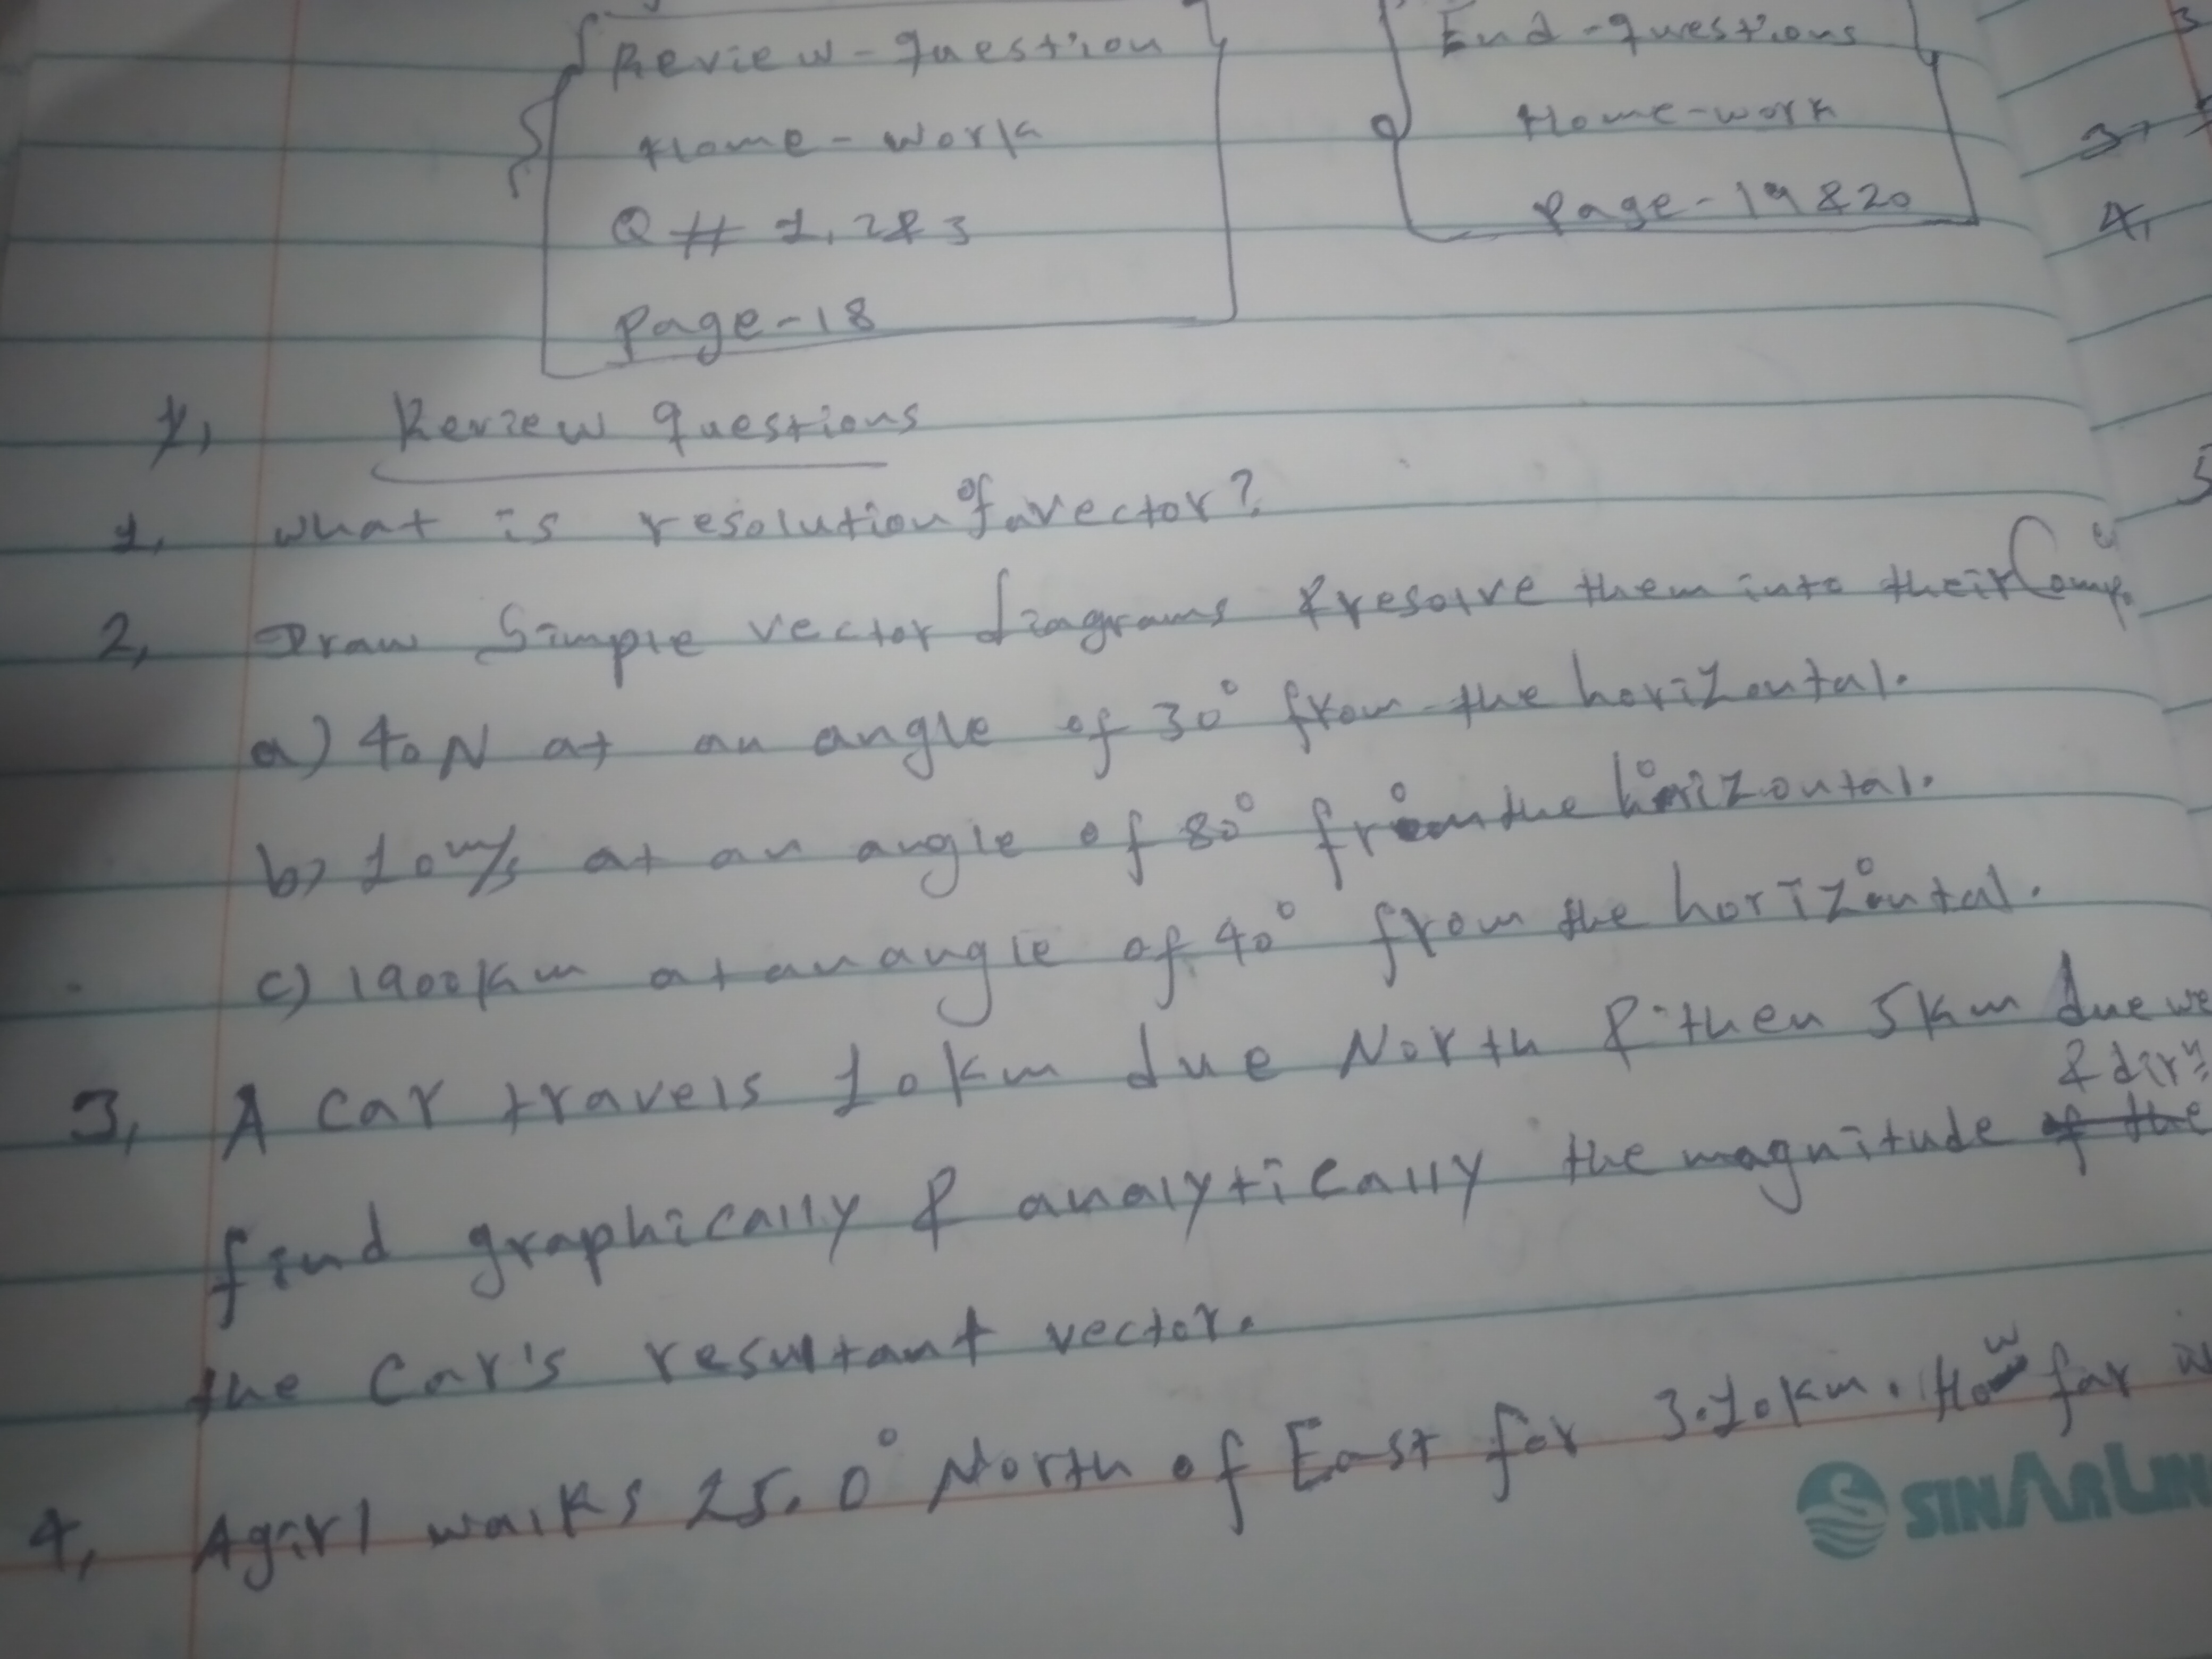 Review-question
Home-work
Q # 1, 2 & 3
Page-18
End-questions
Home-work
Page-19 & 20
3,
4,
5
1, Review questions
1, What is resolution of a vector?
2, Draw Simple vector diagrams & resolve them into their Comp.
a) 40N at an angle of 30° from the horizontal.
b) 10m/s at an angle of 80° from the horizontal.
c) 1900km at an angle of 40° from the horizontal.
3, A car travels 10km due North & then 5km due we
& dirn
find graphically & analytically the magnitude of the
the car's resultant vector.
4, A girl walks 25.0° North of East for 3.10km. How far
SINARLIN